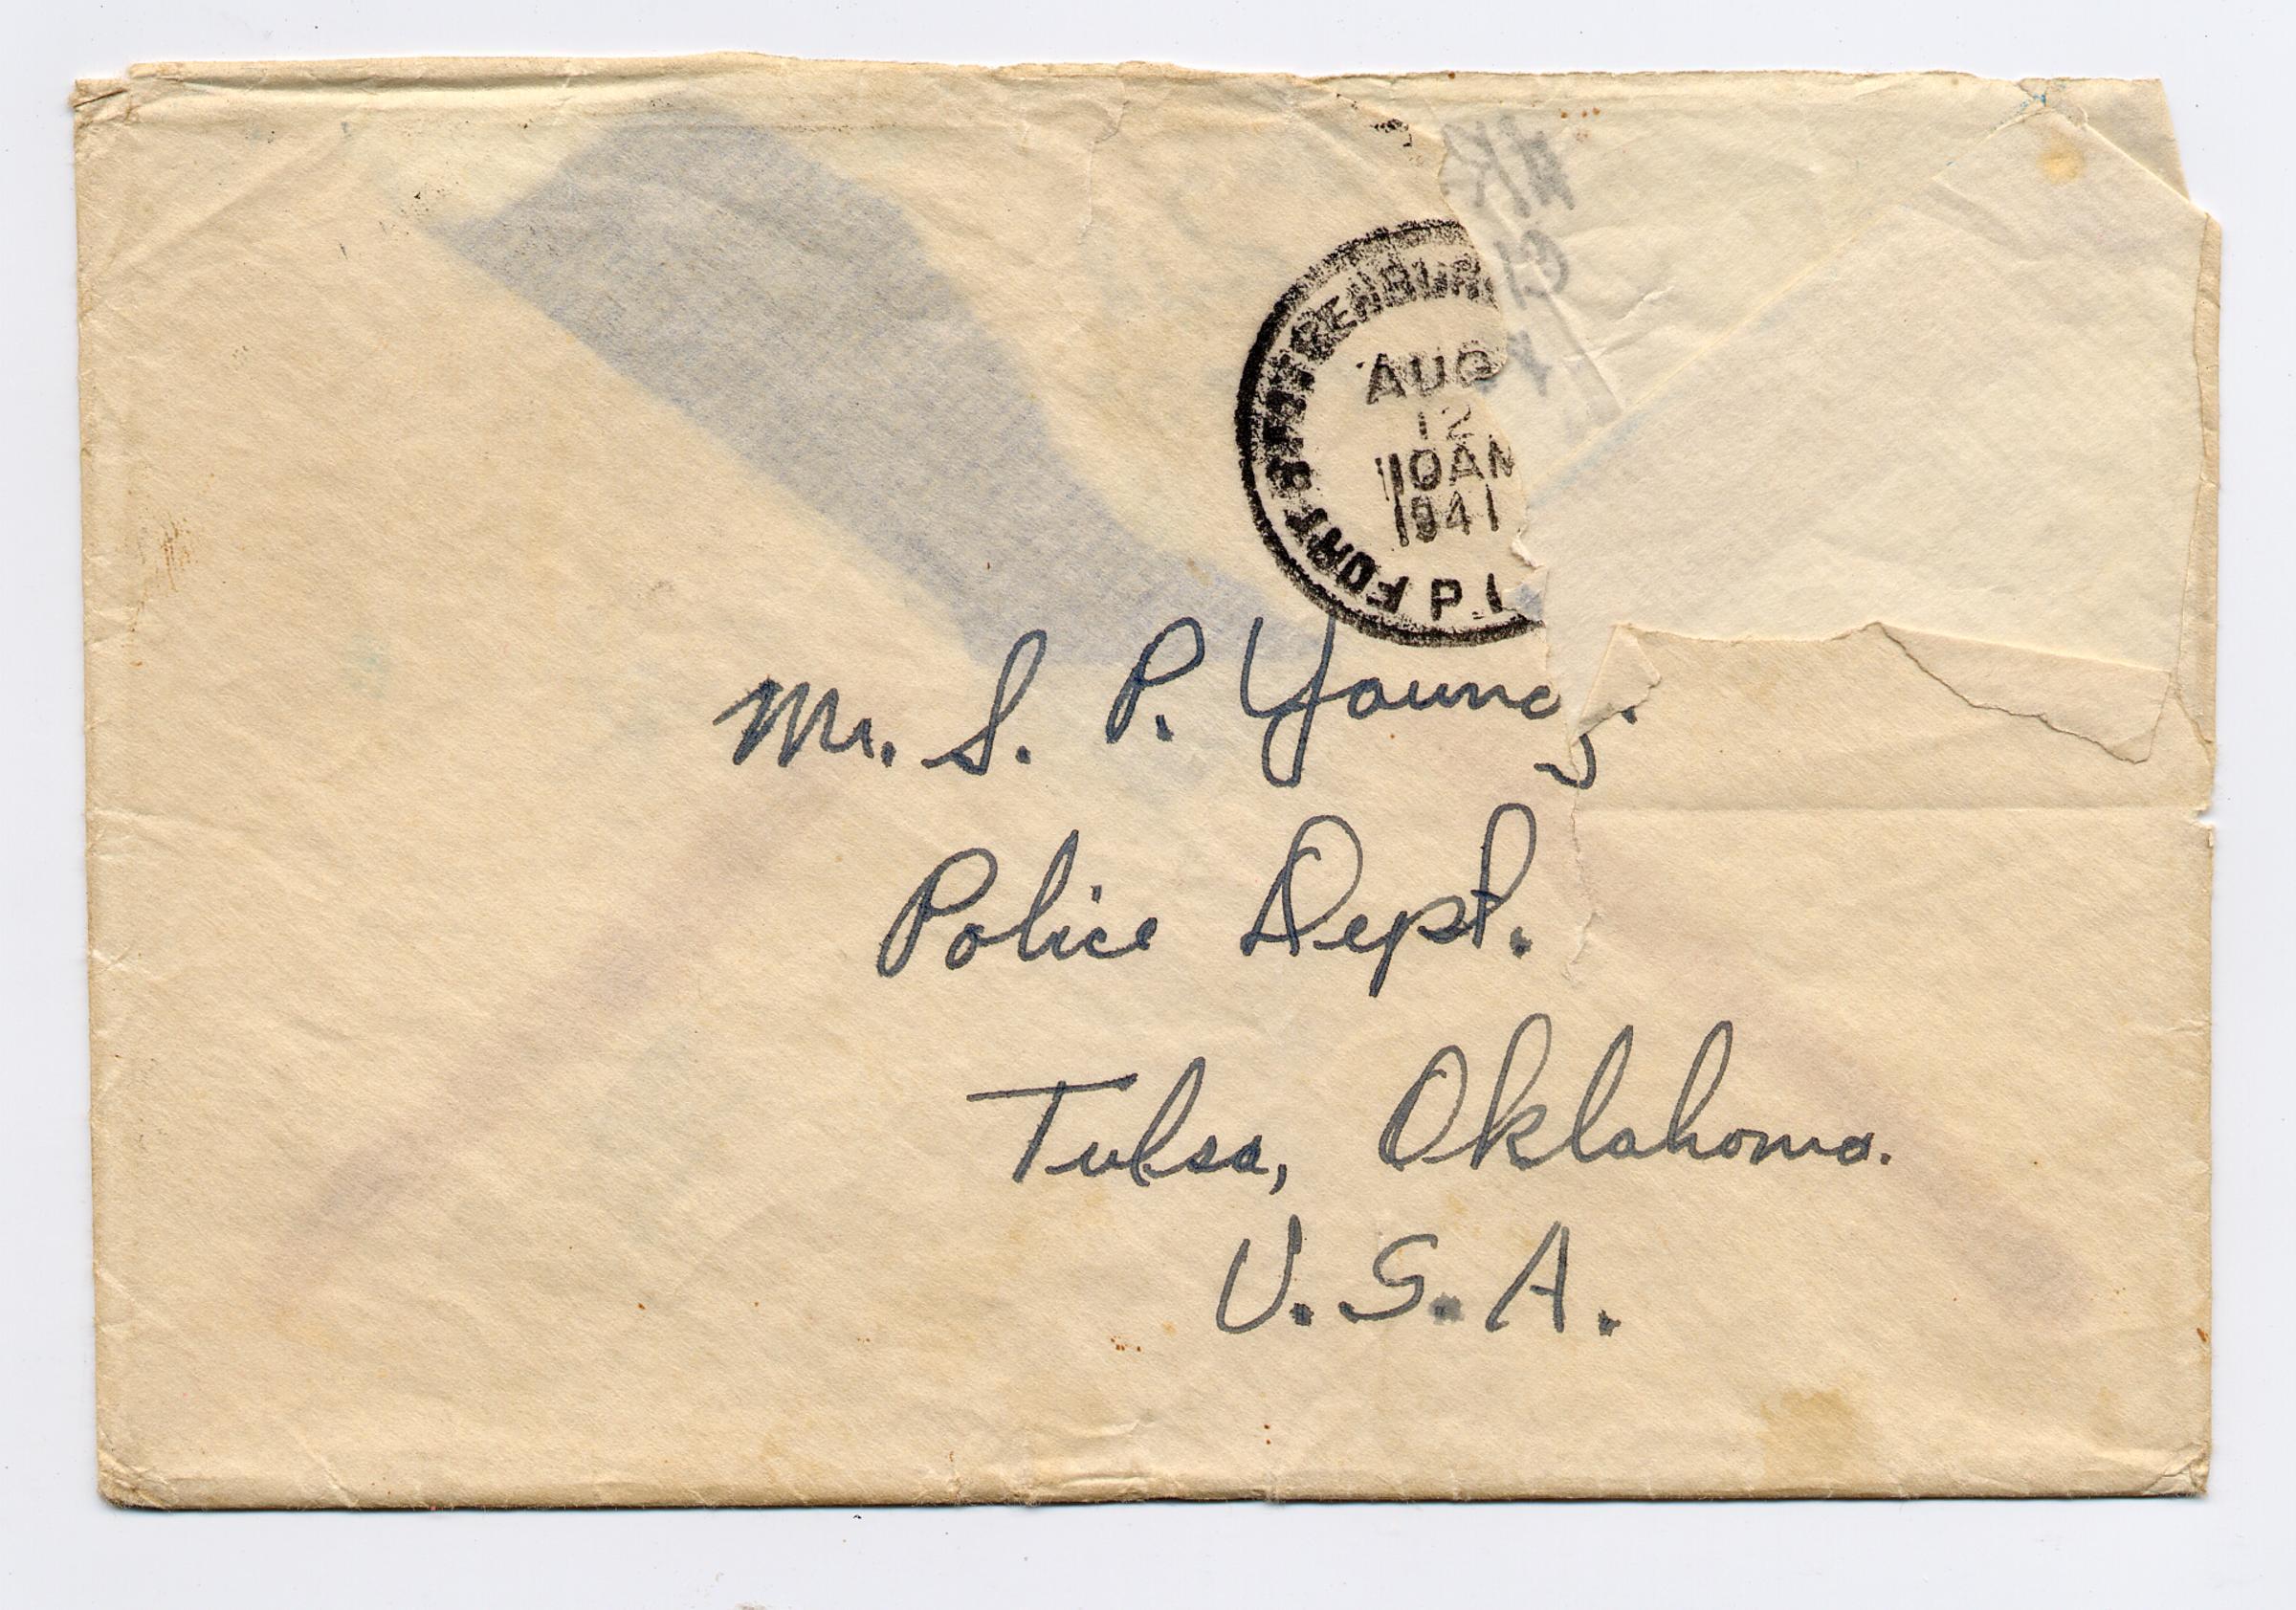 FORT STOTSENBUR
AUG
12
10AM
1941
P I
Mr. S. P. Young.
Police Dept.
Tulsa, Oklahoma.
U.S.A.